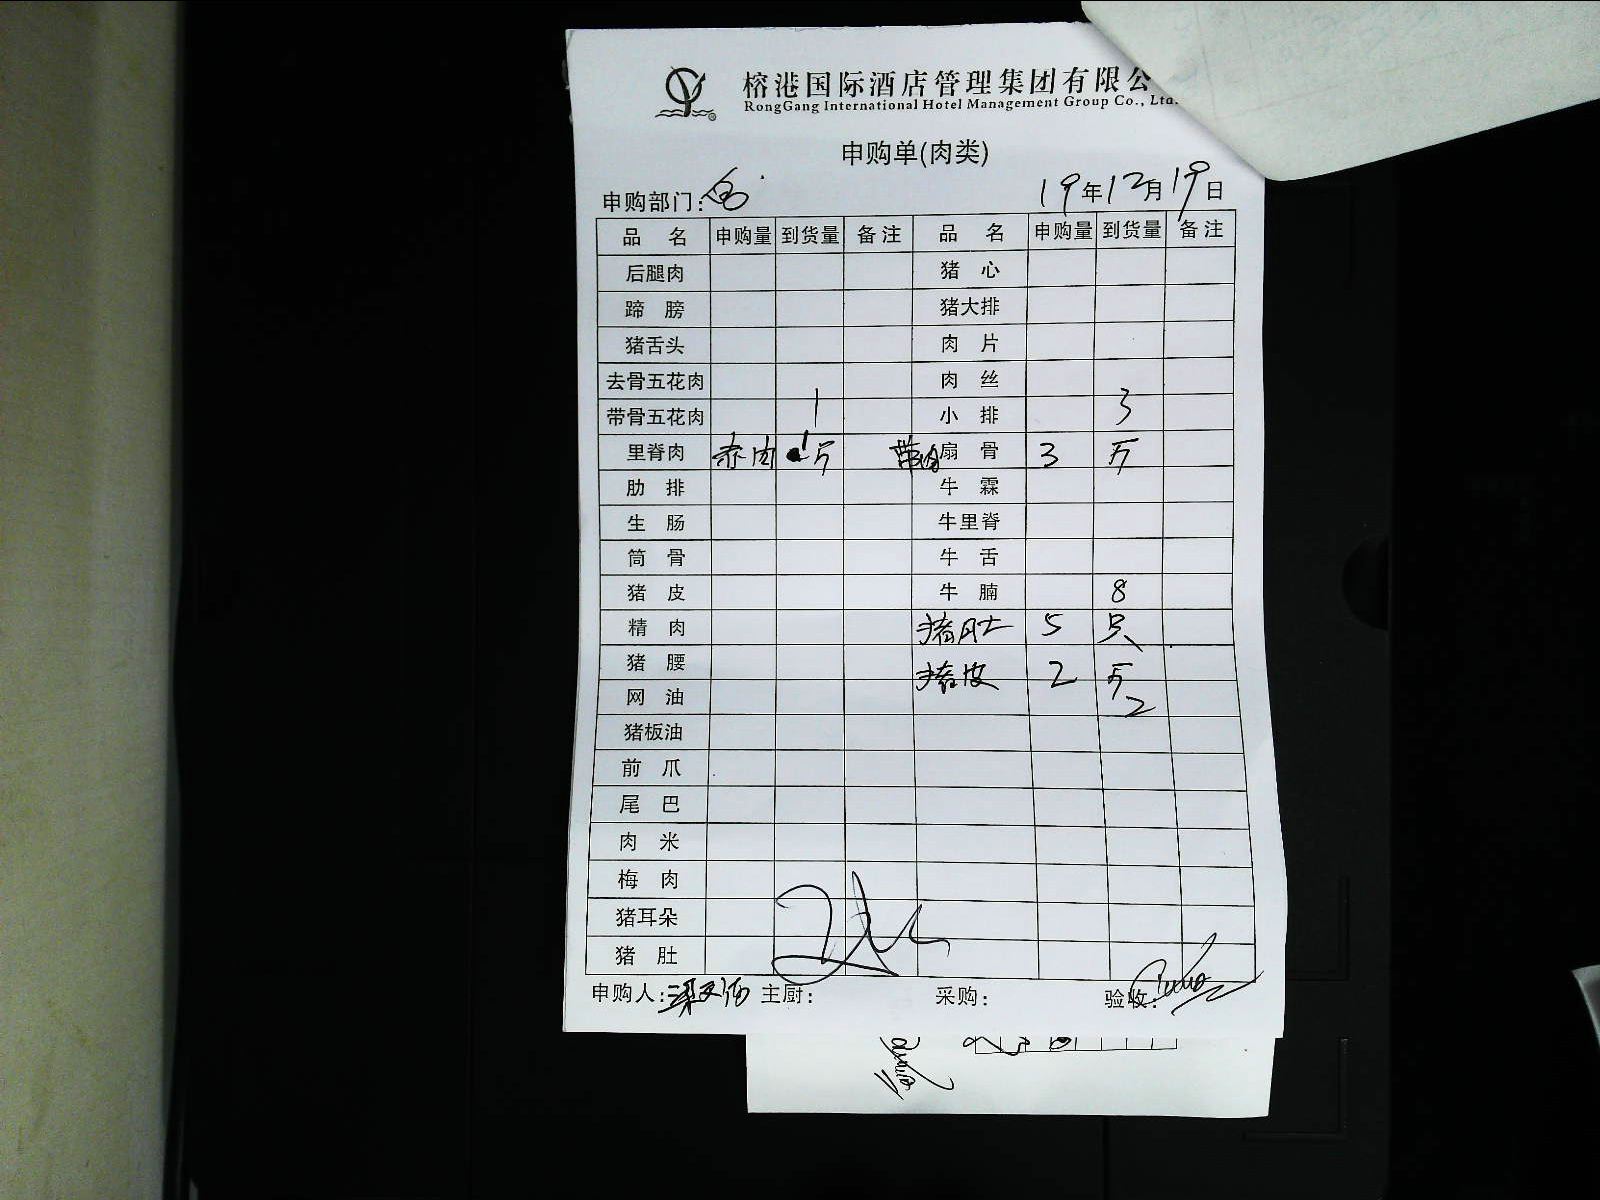 榕港国际酒店管理集团有限公
RongGang International Hotel Management Group Co., Ltd.
申购单(肉类)
申购部门: 19年12月19日
品 名 申购量 到货量 备注 品 名 申购量 到货量 备注
后腿肉 猪 心
蹄 膀 猪大排
猪舌头 肉 片
去骨五花肉 肉 丝
带骨五花肉 1 小 排 3
里脊肉 赤肉 1斤 带肉扇 骨 3 斤
肋 排 牛 霖
生 肠 牛里脊
筒 骨 牛 舌
猪 皮 牛 腩 8
精 肉 猪肚 5 只
猪 腰 猪皮 2 斤
网 油 2
猪板油
前 爪
尾 巴
肉 米
梅 肉
猪耳朵
猪 肚
申购人: 主厨: 采购: 验收: